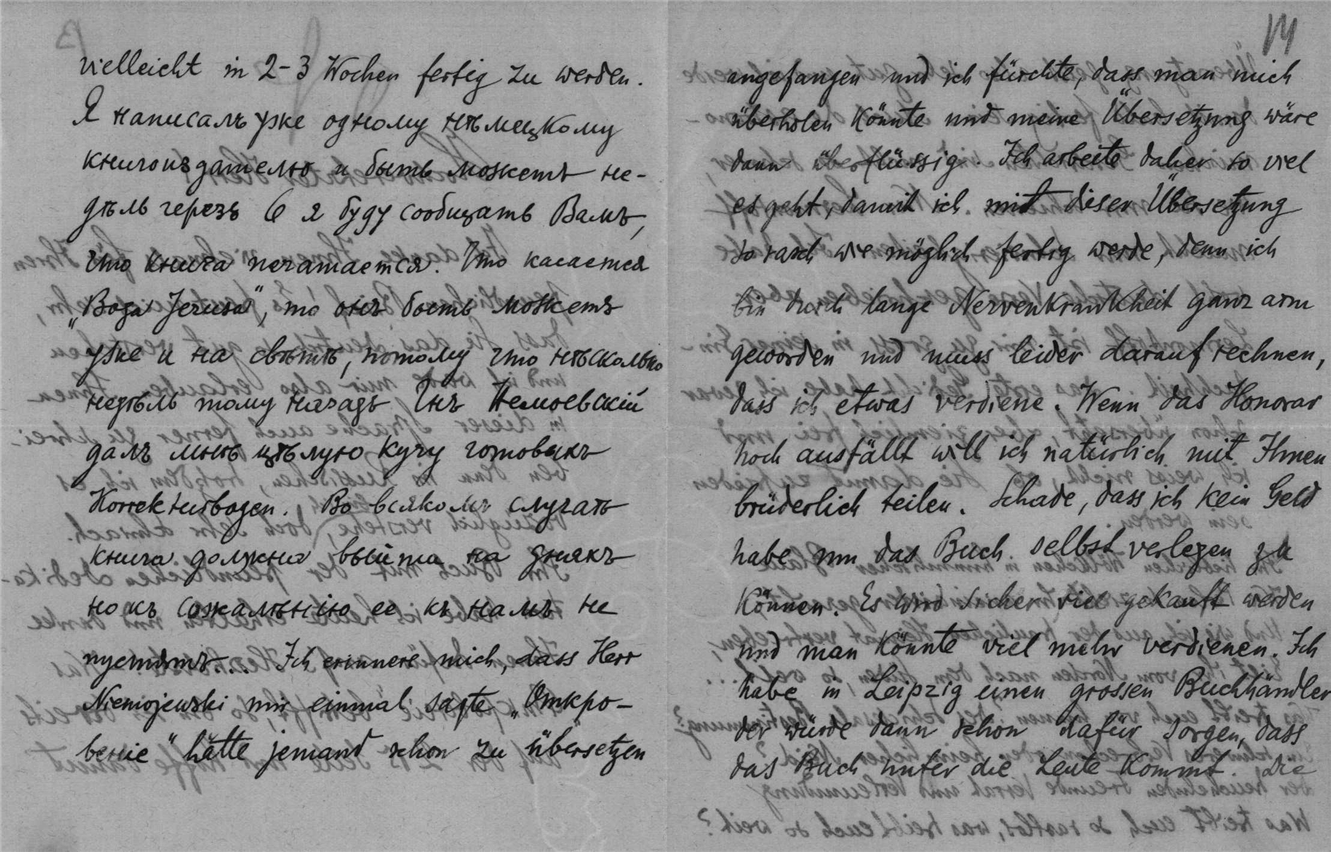 vielleicht in 2-3 Wochen fertig zu werden.
Я написалъ уже одному нѣмецкому
книгоиздателю и быть можетъ не-
дѣль черезъ 6 я буду сообщать Вамъ,
что книга печатается. Что касается
„Boga Jezusa", то онъ быть можетъ
уже и на свѣтѣ, потому что нѣсколько
недѣль тому назадъ Гнъ Немоевскій
далъ мнѣ цѣлую кучу готовыхъ
Korrekturbogen. Во всякомъ случаѣ
книга должна выйти на дняхъ
но къ сожалѣнію ее къ намъ не
пустятъ... Ich erinnere mich, dass Herr
Niemojewski mir einmal sagte „Откро-
вение" hätte jemand schon zu übersetzen
14
angefangen und ich fürchte, dass man mich
überholen könnte und meine Übersetzung wäre
dann überflüssig. Ich arbeite daher so viel
es geht, damit ich mit dieser Übersetzung
so rasch wie möglich fertig werde, denn ich
bin durch lange Nervenkrankheit ganz arm
geworden und muss leider darauf rechnen,
dass ich etwas verdiene. Wenn das Honorar
hoch ausfällt will ich natürlich mit Ihnen
brüderlich teilen. Schade, dass ich kein Geld
habe um das Buch selbst verlegen zu
können. Es wird sicher viel gekauft werden
und man könnte viel mehr verdienen. Ich
habe in Leipzig einen grossen Buchhändler
der würde dann schon dafür sorgen, dass
das Buch unter die Leute kommt. Die